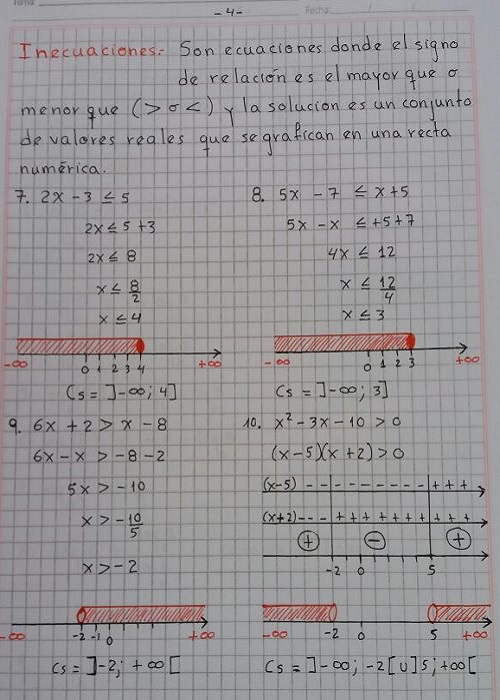 -4-
Fecha:
Inecuaciones: Son ecuaciones donde el signo
de relación es el mayor que o
menor que (> o <) y la solucion es un conjunto
de valores reales que se grafican en una recta
numérica.
7. 2x - 3 ≤ 5
2x ≤ 5 + 3
2x ≤ 8
x ≤ 8/2
x ≤ 4
-∞ 0 1 2 3 4 +∞
Cs = ]-∞; 4]
8. 5x - 7 ≤ x + 5
5x - x ≤ +5 + 7
4x ≤ 12
x ≤ 12/4
x ≤ 3
-∞ 0 1 2 3 +∞
Cs = ]-∞; 3]
9. 6x + 2 > x - 8
6x - x > -8 - 2
5x > -10
x > -10/5
x > -2
-∞ -2 -1 0 +∞
Cs = ]-2; +∞[
10. x² - 3x - 10 > 0
(x - 5)(x + 2) > 0
(x-5) - - - - - - - - - + + +
(x+2) - - - + + + + + + + + +
+ - +
-2 0 5
-∞ -2 0 5 +∞
Cs = ]-∞; -2[ U ]5; +∞[